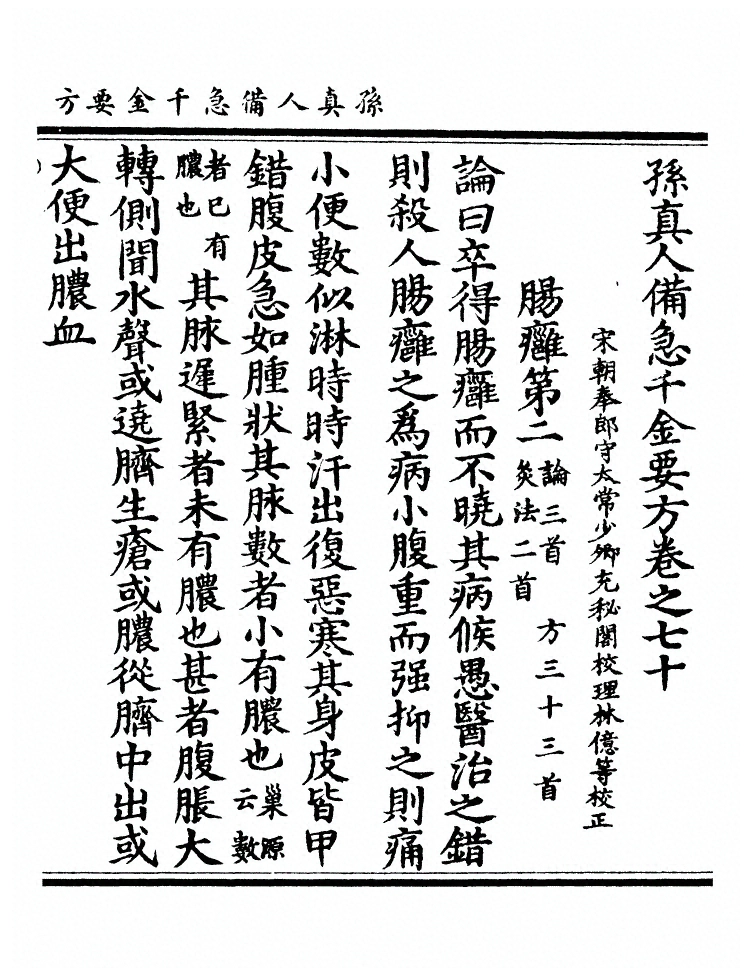 孫真人備急千金要方
孫真人備急千金要方卷之七十
宋朝奉郎守太常少卿充秘閣校理林億等校正
腸癰第二 論三首 方三十三首 灸法二首
論曰卒得腸癰而不曉其病候愚醫治之錯
則殺人腸癰之爲病小腹重而强抑之則痛
小便數似淋時時汗出復惡寒其身皮皆甲
錯腹皮急如腫狀其脉數者小有膿也巢源云數
者已有膿也其脉遲緊者未有膿也甚者腹脹大
轉側聞水聲或遶臍生瘡或膿從臍中出或
大便出膿血